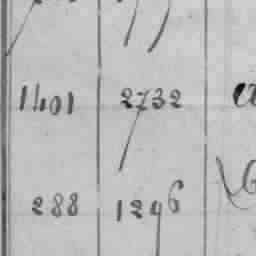 1401 2732
288 1296